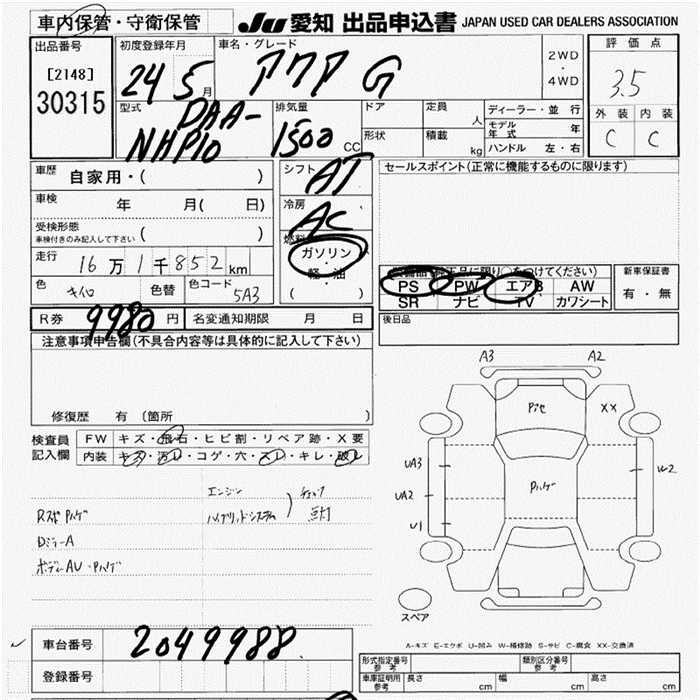 車内保管・守衛保管
JU 愛知 出品申込書 JAPAN USED CAR DEALERS ASSOCIATION
出品番号
[2148]
30315
初度登録年月
24 5 月
車名・グレード
アクア G
2WD
・
4WD
評価点
3.5
外装 内装
C C
型式
DAA-
NHP10
排気量
1500 cc
ドア
形状
定員 人
積載 kg
ディーラー・並行
モデル年式 年
ハンドル 左・右
車歴 自家用・( )
車検 年 月( 日)
受検形態
車検付きのみ記入して下さい ( )
走行 16万1千852km
色 キイロ 色替 色コード 5A3
シフト
AT
冷房
AC
燃料
ガソリン
・
軽・油
( )
セールスポイント(正常に機能するものに限ります)
PS PW エアB AW
SR ナビ TV カワシート
新車保証書
有・無
R券 9980 円 名変通知期限 月 日
後日品
注意事項申告欄(不具合内容等は具体的に記入して下さい)
修復歴 有 (箇所 )
検査員
記入欄
FW キズ・飛石・ヒビ割・リペア跡・X要
内装 キズ・汚レ・コゲ・穴・スレ・キレ・破レ
エンジン
ハイブリッドシステム
チェック
点灯
Rスポ Pハゲ
Dミラー A
ボディー AU・Pハゲ
A3 A2
P亡セ
XX
UA3
UA2
U1
Pハゲ
W2
スペア
A-キズ E-エクボ U-凹み W-補修跡 S-サビ C-腐食 XX-交換済
車台番号 2049988
登録番号
形式指定番号 参考
類別区分番号 参考
車庫証明用 参考
長さ cm 幅 cm 高さ cm